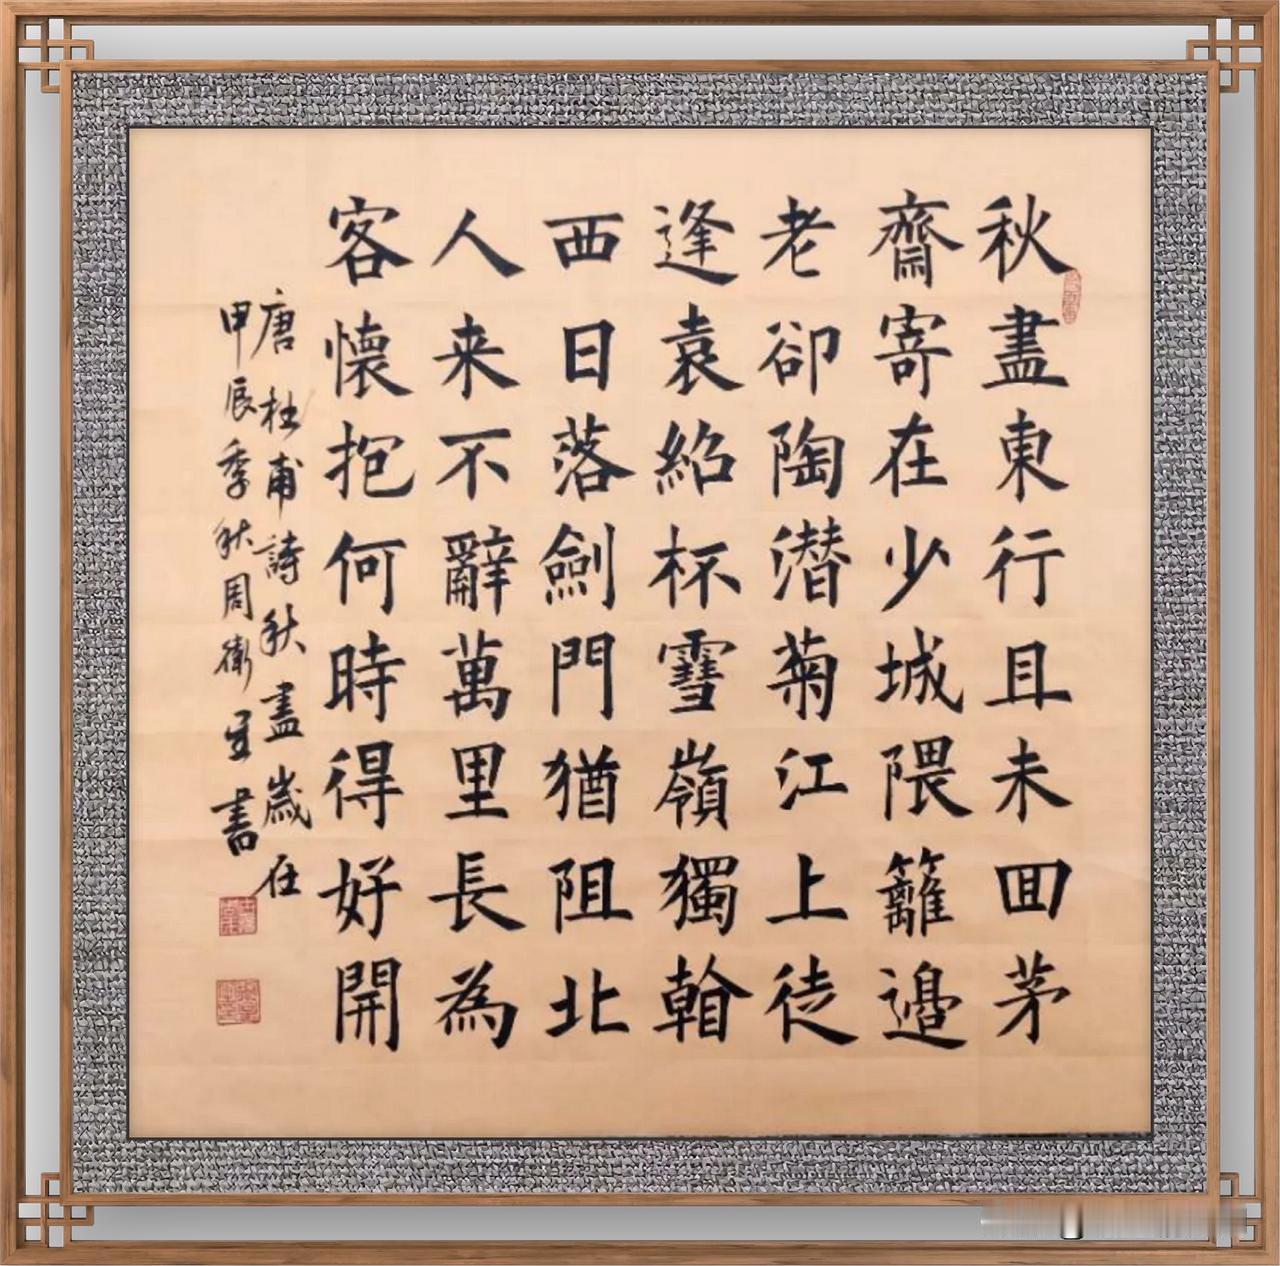 秋盡東行且未回茅
齋寄在少城隈籬邊
老卻陶潜菊江上徒
逢袁紹杯雪嶺獨看
西日落劍門猶阻北
人来不辭萬里長為
客懷抱何時得好開
唐杜甫詩秋盡歲在
甲辰季秋周衛星書